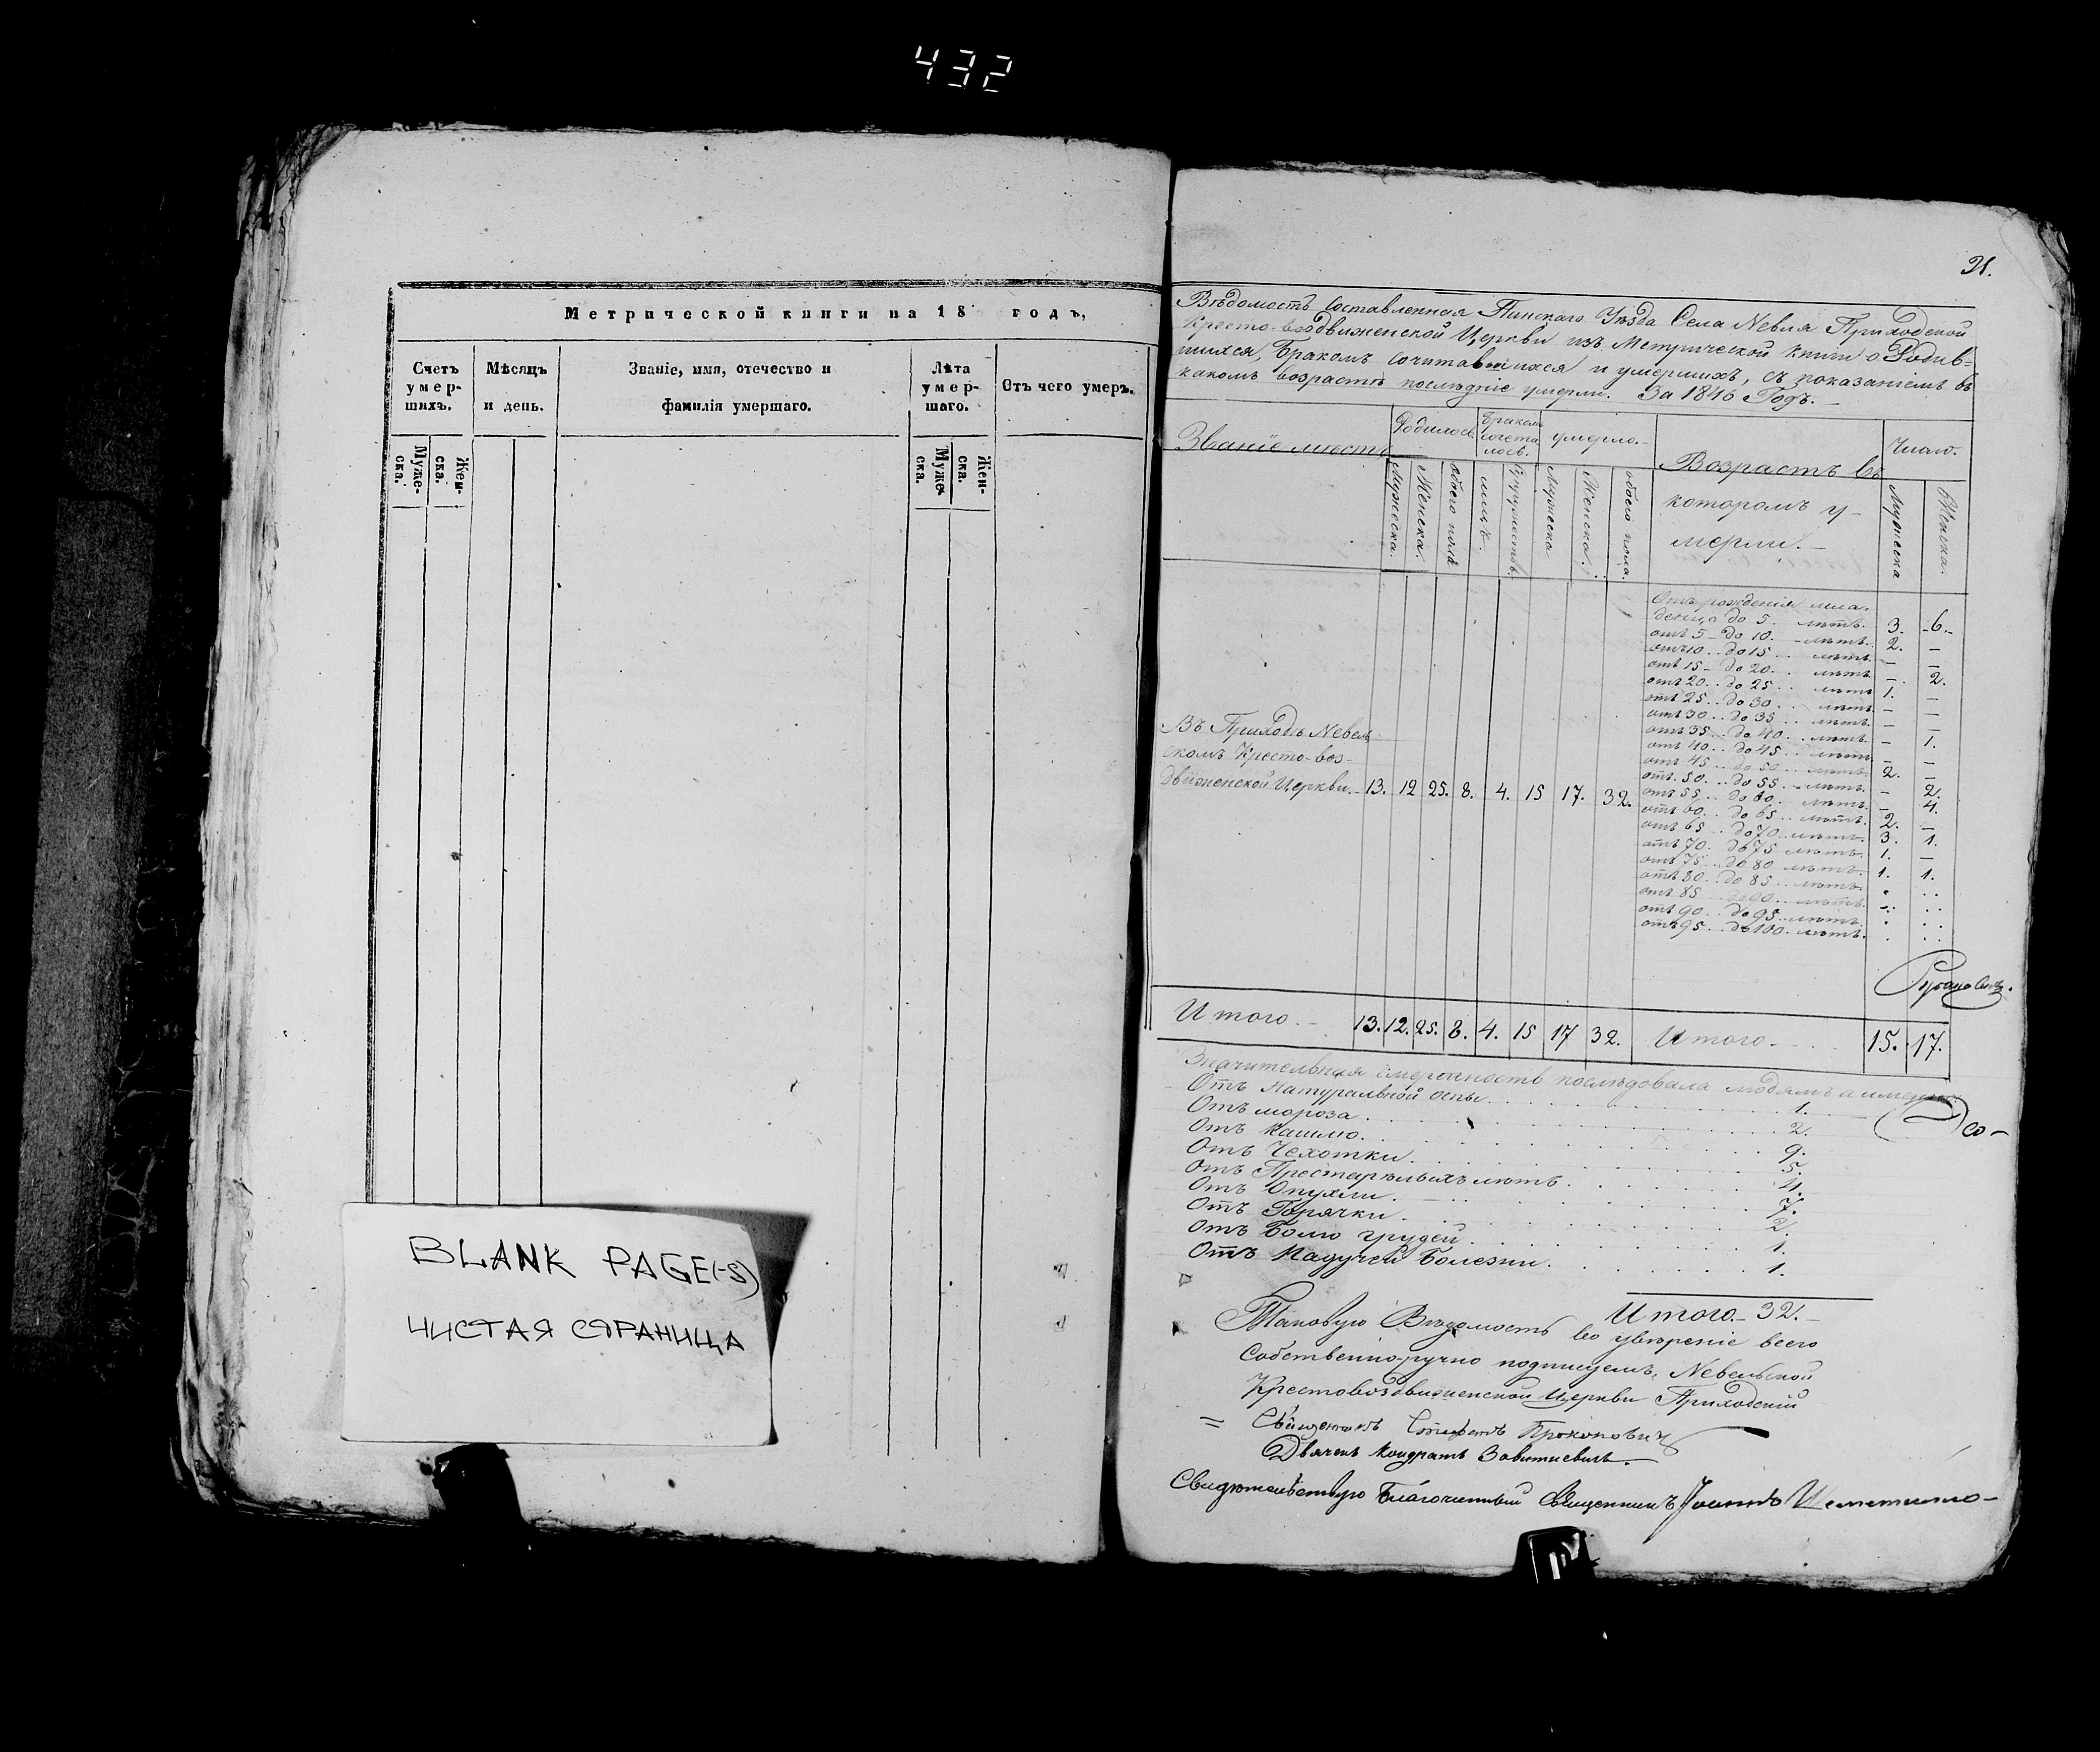 432
Метрической книги на 18 годъ,
Счетъ умер-шихъ.
Мѣсяцъ и день.
Званіе, имя, отечество и фамилія умершаго.
Лѣта умер-шаго.
Отъ чего умеръ.
Муже-ска.
Жен-ска.
Муже-ска.
Жен-ска.
BLANK PAGE(-S)
ЧИСТАЯ СТРАНИЦА
21.
Вѣдомость Составленная Пинскаго Уѣзда Села Невля Приходской
Кресто-воздвиженской Церкви изъ Метрической книги о Родив-
шихся, Бракомъ сочитавшихся и умершихъ, съ показаніемъ въ
какомъ возрастѣ послѣдніе умерли. За 1846 Годъ.
Званіе мѣстъ
Родилось
Бракомъ сочета лось.
умерло.
Возрастъ въ
которомъ у-
мерли.
Число.
Мужеска.
Женска.
Обоего пола
Мужеска
Женска.
обоего пола.
Мужеска
Женска.
Отъ рожденія мла-
денца до 5. лѣтъ. 3. 6.
отъ 5 до 10. лѣтъ. 2. –
отъ 10.. до 15 лѣтъ. – –
отъ 15 – до 20. лѣтъ –. 2.
отъ 20.. до 25.. лѣтъ 1. –
отъ 25.. до 30.. лѣтъ – –
отъ 30.. до 35.. лѣтъ. – –
отъ 35.. до 40.. лѣтъ. – 1.
отъ 40.. до 45.. лѣтъ – –
отъ 45.. до 50.. лѣтъ. 2. –
отъ 50... до 55... лѣтъ. – 2.
отъ 55... до 60.. лѣтъ. – 4.
отъ 60.. до 65.. лѣтъ. 2. –
отъ 65... до 70.. лѣтъ. 3. 1.
отъ 70. до 75 лѣтъ. 1. –
отъ 75.. до 80 лѣтъ. 1. 1.
отъ 80.. до 85.. лѣтъ.
отъ 85 до 90.. лѣтъ.
отъ 90... до 95.. лѣтъ.
отъ 95... до 100. лѣтъ.
Въ Приходѣ Невель
скомъ Кресто-воз-
движенской Церкви. 13. 12 25. 8. 4. 15 17. 32.
Итого. 13. 12. 25. 8. 4. 15 17 32. Итого. 15. 17.
Значительная смертность послѣдовала людямъ а именно
Отъ Натуральной оспы 1.
Отъ мороза 2.
Отъ кашлю. 9.
Отъ Чехотки. 5.
Отъ Престарѣлыхъ лѣтъ. 4.
Отъ Опухли. 7.
Отъ Горячки. 2.
Отъ Болю грудей. 1.
Отъ Падучей Болезни. 1.
Со-
Итого. 32.
Таковую Вѣдомость во увѣреніе всего
Собственно-ручно подписуемъ, Невельской
Крестовоздвиженской Церкви Приходскій
= Священникъ Прокоповичъ
Дьячекъ Кондратъ
Свидѣтельствую Благочинный Священникъ Іоаннъ